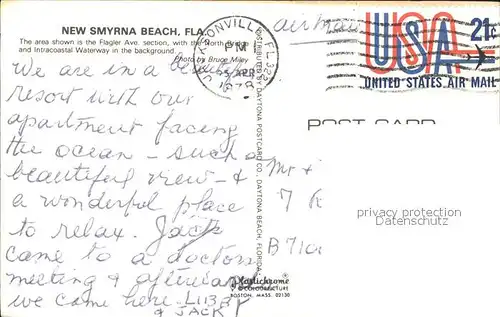 NEW SMYRNA BEACH, FLA.
The area shown is the Flagler Ave. section, with the North Bridge
and Intracoastal Waterway in the background.
Photo by Bruce Miley
We are in a beautiful
resort with our
apartment facing
the ocean - such a
beautiful view - &
a wonderful place
to relax. Jack
came to a doctors
meeting & afterward
we came here. Libby
& JACK
DISTRIBUTED BY DAYTONA POSTCARD CO., DAYTONA BEACH, FLORIDA
Plastichrome
BY COLOURPICTURE
BOSTON, MASS. 02130
JACKSONVILLE, FL 322
PM
airmail
USA 21c
UNITED STATES AIR MAIL
POST CARD
Mr &
7
B 710
privacy protection
Datenschutz